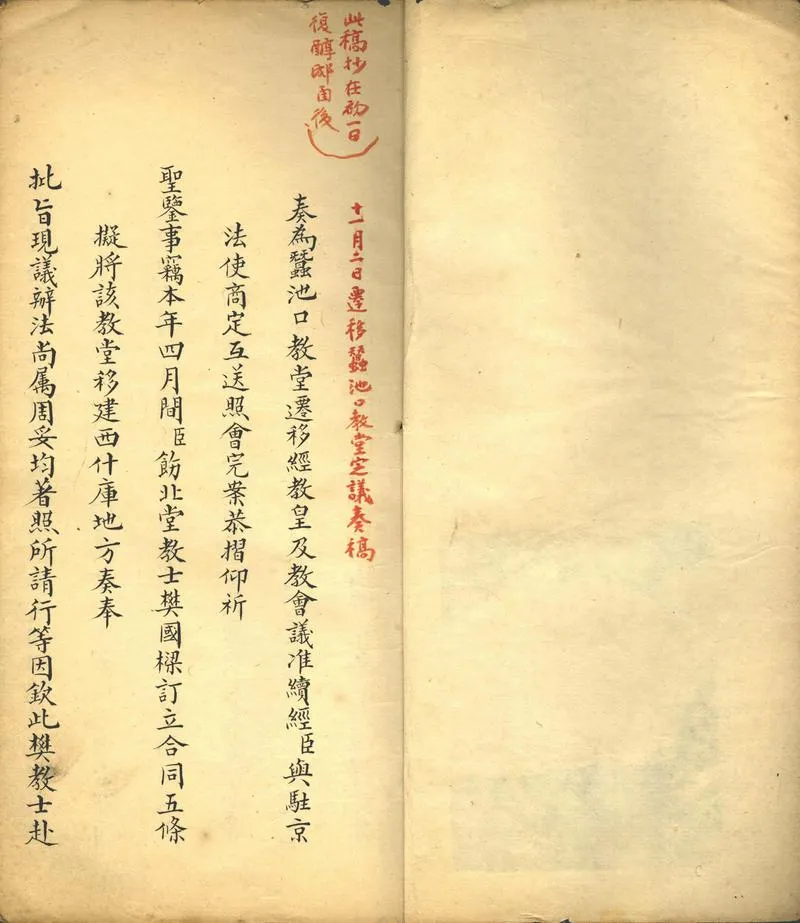 此稿抄在初一日
復醇邸函後
十一月二日遷移蠶池口教堂定議奏稿
奏為蠶池口教堂遷移經教皇及教會議准續經臣與駐京
法使商定互送照會完案恭摺仰祈
聖鑒事竊本年四月間臣飭北堂教士樊國樑訂立合同五條
擬將該教堂移建西什庫地方奏奉
批旨現議辦法尚属周妥均著照所請行等因欽此樊教士赴